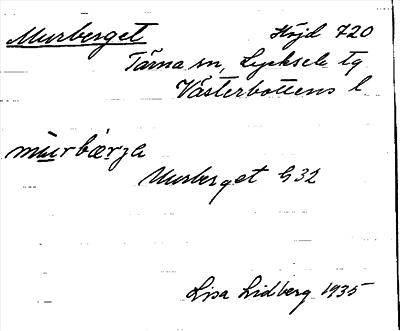 Murberget Höjd 720
Tärna sn, Lycksele tg
Västerbottens l.
mu̱rbæṟja
Murberget G32
Lisa Lidberg 1935